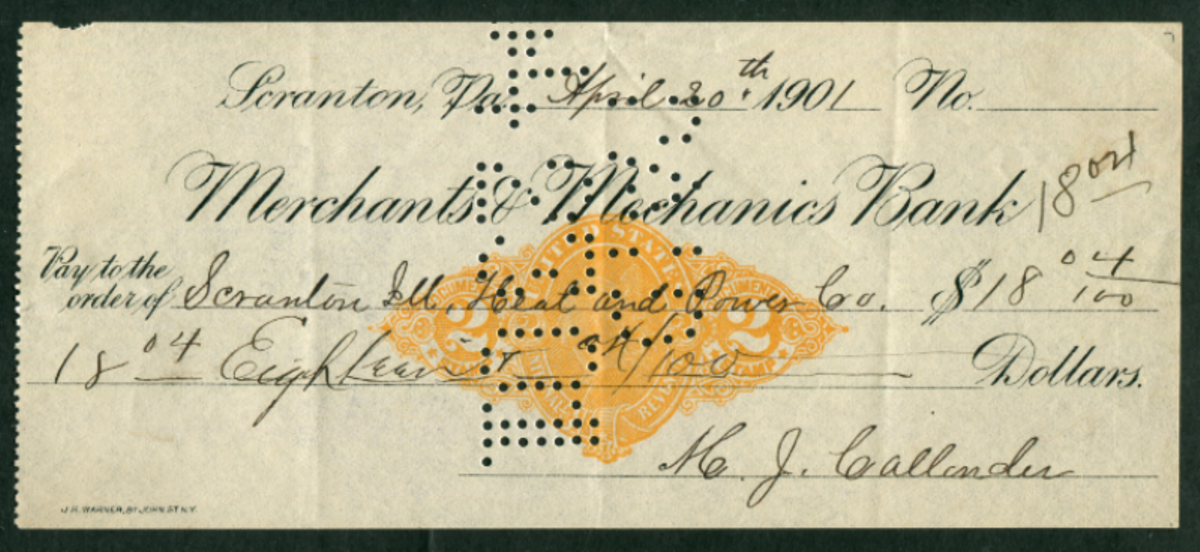 Scranton, Pa. April 20th 1901 No.
Merchants & Mechanics Bank 18 04
Pay to the
order of Scranton Ill. Heat and Power Co. $18 04/100
18 04 Eighteen & 04/100 Dollars.
UNITED STATES
DOCUMENTARY
2 2
STAMP
INTERNAL REVENUE
M. J. Callender
J. H. WARNER, 81 JOHN ST. N.Y.